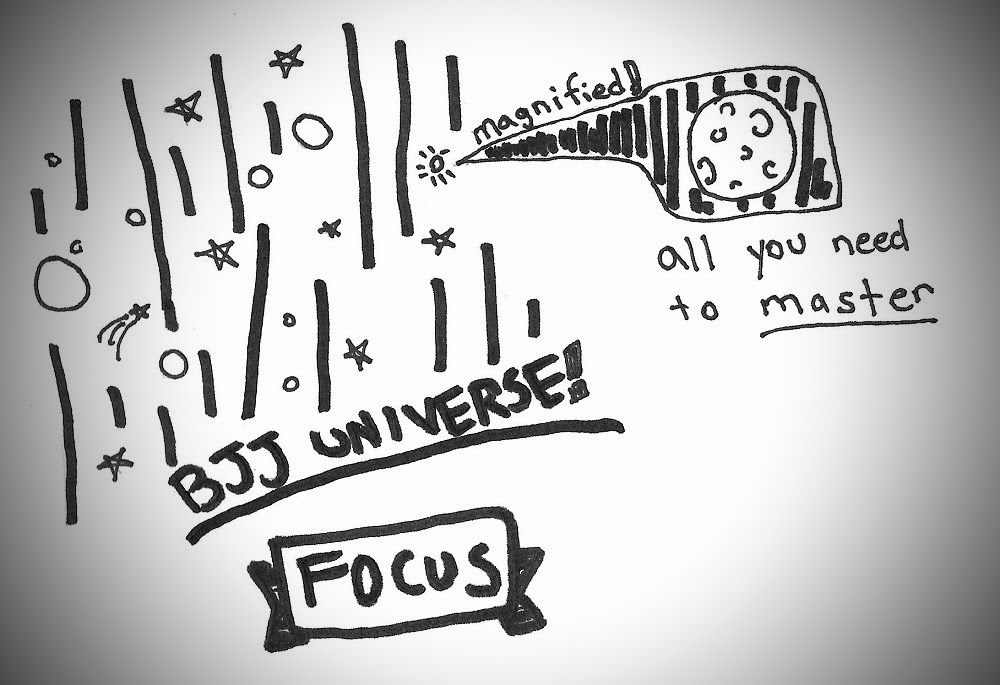 magnified!
all you need
to master
BJJ UNIVERSE!
FOCUS